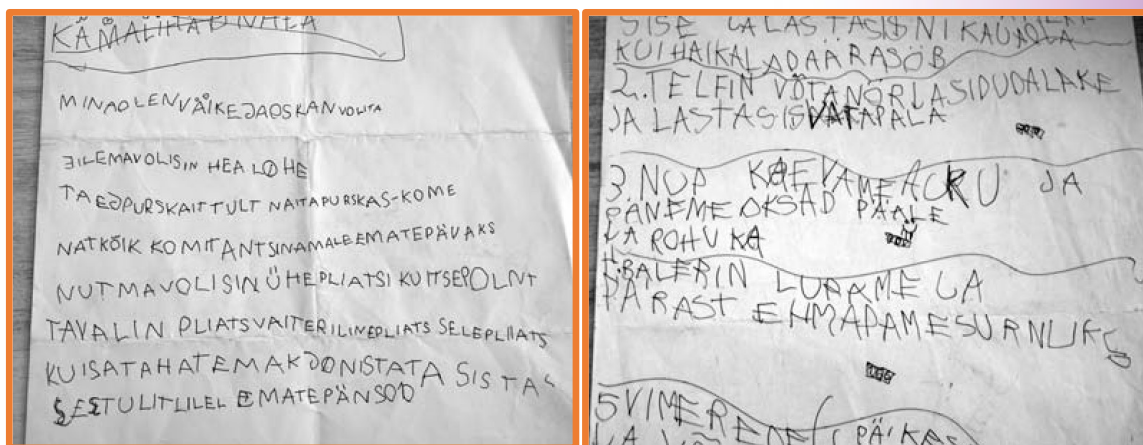 MINAOLENVÄIKEJAOSKANVOLITA
EILEMAVOLISIN HEA LOHE
TAEJPURSKAITTULT NAITAPURSKAS-KOME
NATKÕIK KOMITANTSINAMALEEMATEPÄVAKS
NUTMAVOLISIN ÜHEPLIATSI KUITSEPOLNT
TAVALIN PLIATSVAITERILINEPLIATS SELEPLIIATS
KUISATAHATEMAKJONISTATA SISTA
SEETULITLILEL EMATEPÄNSOD
SISE JALASTASISNI
KUIHAIKALADÄÄRASÖB
2. TELFIN VÕTANÖRJASIDUDALAKE
JA LASTASISVATAPALA
3. NUP KAEVAMEAUKU JA
PÄNEMEOKSAD PÄÄLE
JA ROHUKA
4. BALERIN LUPAME JA
PÄRAST EHMADAMESURNUKS
5 VIMERE